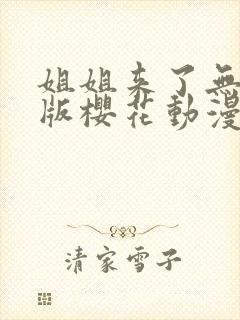 姐姐来了無
版櫻花動漫
清家雪子